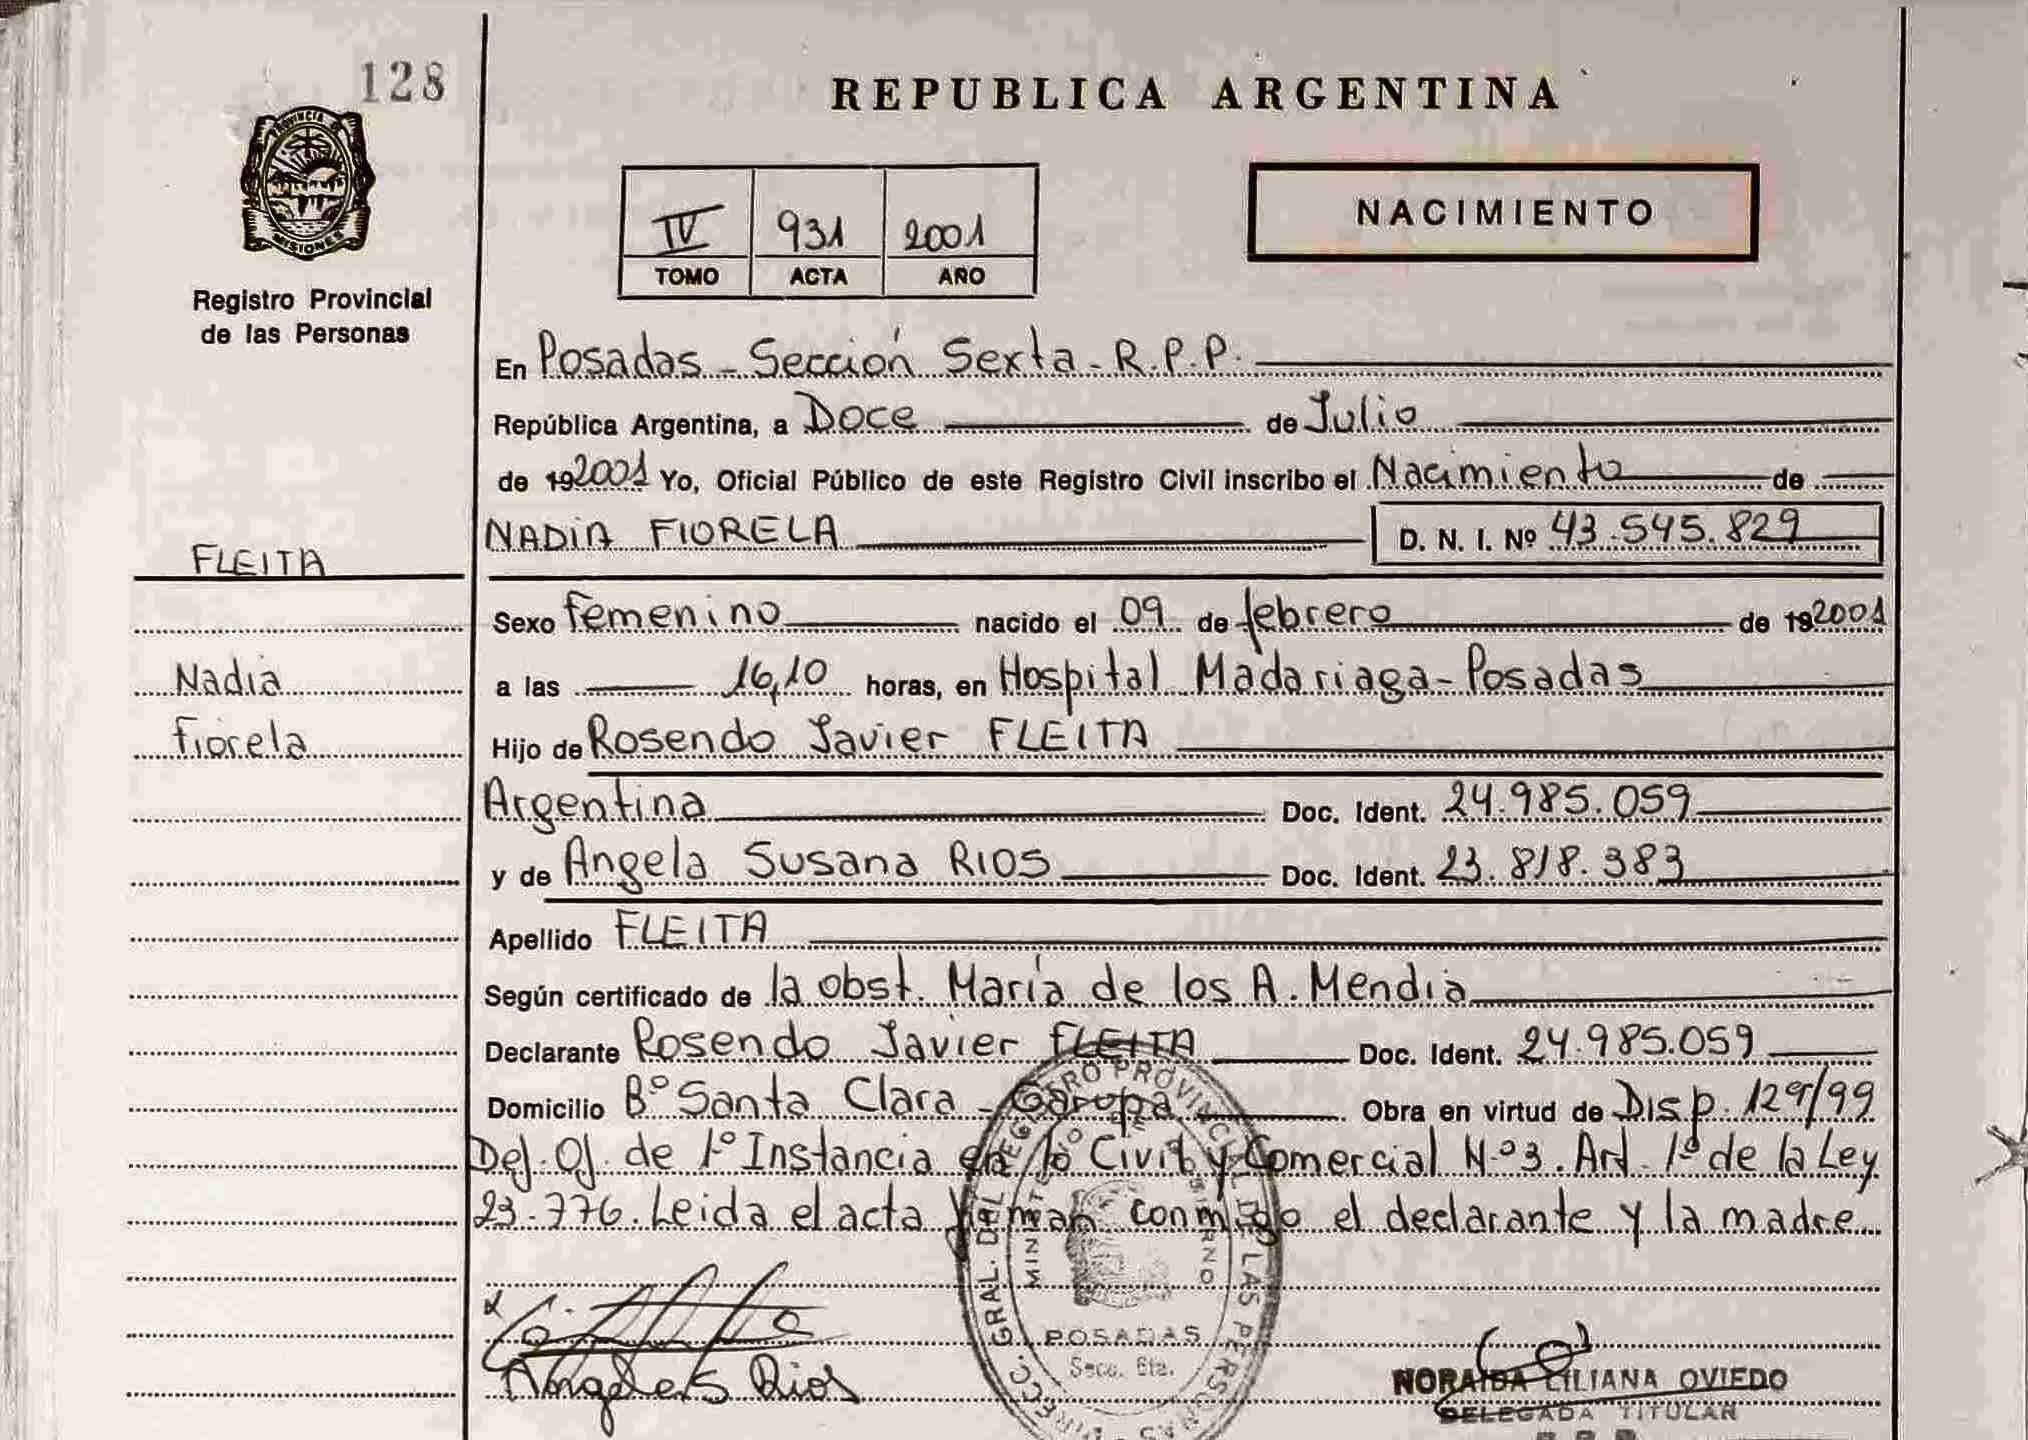 128
REPUBLICA ARGENTINA
PROVINCIA DE
MISIONES
Registro Provincial
de las Personas
IV 931 2001
TOMO ACTA AÑO
NACIMIENTO
En Posadas - Sección Sexta - R.P.P.
República Argentina, a Doce de Julio
de 192001 Yo, Oficial Público de este Registro Civil inscribo el Nacimiento de
NADIA FIORELA D. N. I. Nº 43.545.829
FLEITA
Sexo Femenino nacido el 09 de febrero de 192001
Nadia
a las 16,10 horas, en Hospital Madariaga - Posadas
Fiorela
Hijo de Rosendo Javier FLEITA
Argentina Doc. Ident. 24.985.059
y de Angela Susana RIOS Doc. Ident. 23.818.383
Apellido FLEITA
Según certificado de la obst. María de los A. Mendia
Declarante Rosendo Javier FLEITA Doc. Ident. 24.985.059
Domicilio Bº Santa Clara - Garupa Obra en virtud de Disp. 129/99
Def. Of. de 1º Instancia en lo Civil y Comercial N.º 3. Art. 1º de la Ley
23.776. Leida el acta firman conmigo el declarante y la madre
Angela S Rios
DIRECC. GRAL. DEL REGISTRO PROVINCIAL DE LAS PERSONAS
MINISTERIO DE GOBIERNO
POSADAS
Secc. 6ta.
NORAIDA LILIANA OVIEDO
DELEGADA TITULAR